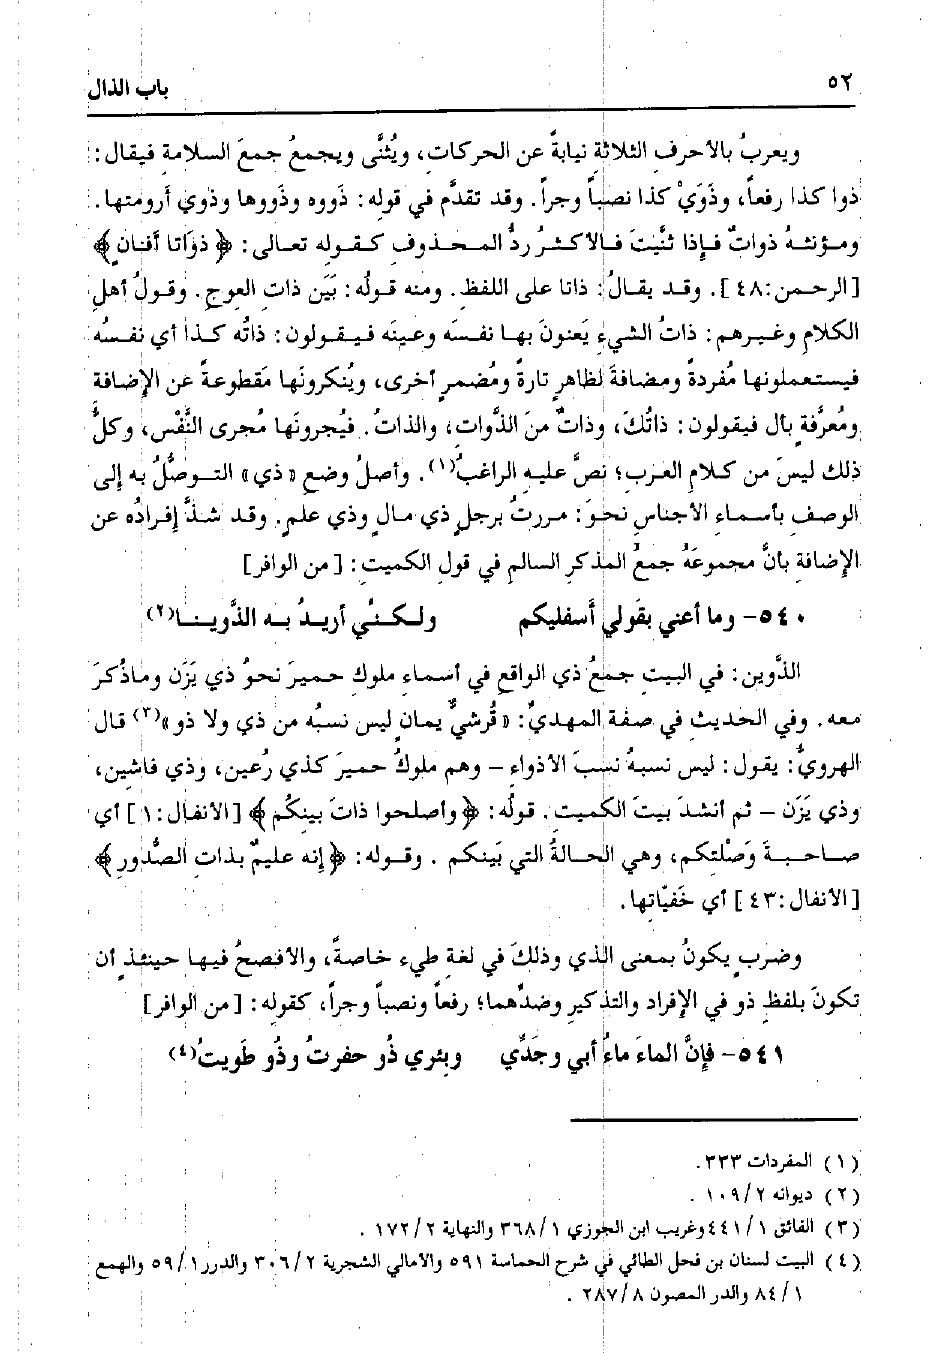 ٥٢
باب الذال
ويعربُ بالأحرف الثلاثة نيابةً عن الحركات، ويُثنَّى ويجمعُ جمعَ السلامة فيقال:
ذوا كذا رفعاً، وذَوَيْ كذا نصباً وجراً. وقد تقدَّم في قوله: ذووه وذَووها وذوي أرومتها.
ومؤنثهُ ذواتٌ فإذا ثنَّيتَ فالأكثرُ ردُّ المحذوف كقوله تعالى: ﴿ ذوَاتا أفنانٍ ﴾
[الرحمن: ٤٨]. وقد يقالُ: ذاتا على اللفظ. ومنه قولُه: بَيّن ذات العوج. وقولُ أهلِ
الكلام وغيرهم: ذاتُ الشيءِ يَعنونَ بها نفسَه وعينَه فيقولون: ذاتُه كذا أي نفسُه
فيستعملونها مُفردةً ومضافةً لظاهرٍ تارةً ومُضمرٍ أخرى، ويُنكرونَها مَقطوعةً عن الإضافة
ومُعرَّفة بأل فيقولون: ذاتُكَ، وذاتٌ منَ الذَّوات، والذاتُ. فيُجرونَها مُجرى النَّفْس، وكلُّ
ذلك ليسَ من كلامِ العرب؛ نصَّ عليه الراغبُ(١). وأصلُ وضع « ذي» التوصُّلُ به إلى
الوصف بأسماءِ الأجناسِ نحوَ: مررتُ برجلٍ ذي مالٍ وذي علمٍ. وقد شذَّ إفرادُه عن
الإضافة بأنَّ مجموعَهُ جمعُ المذكرِ السالمِ في قولِ الكميت: [ من الوافر]
٥٤٠- وما أعني بقولي أسفليكم ولكنّي أريدُ به الذَّوينا(٢)
الذَّوين: في البيت جمعُ ذي الواقع في أسماءِ ملوك حميرَ نحوُ ذي يَزَن وماذُكرَ
معه. وفي الحديث في صفة المهديِّ: « قُرشيٌّ يمانٍ ليس نسبُه من ذي ولا ذو »(٣) قال
الهرويُّ: يقول: ليس نسبهُ نسَبَ الأذواء – وهم ملوكُ حميرَ كذي رُعين، وذي فاشين،
وذي يَزَن – ثم أنشدَ بيتَ الكميت. قولُه: ﴿ وأصلحوا ذاتَ بينِكُم ﴾ [الأنفال: ١ ] أي
صاحبةَ وَصْلتِكم، وهي الحالةُ التي بَينكم . وقوله: ﴿إنه عليمٌ بذات الصُّدورِ ﴾
[الأنفال: ٤٣ ] أي خَفيّاتها.
وضربٍ يكونُ بمعنى الذي وذلكَ في لغة طيء خاصةً، والأفصحُ فيها حينئذٍ أن
تكونَ بلفظِ ذو في الإفراد والتذكيرِ وضدِّهما؛ رفعاً ونصباً وجراً، كقوله: [من الوافر]
٥٤١- فإنَّ الماءَ ماءُ أبي وجَدّي وبئري ذُو حفرتُ وذُو طَويتُ(٤)
(١) المفردات ٣٣٣.
(٢) ديوانه ٢/ ١٠٩ .
(٣) الفائق ١/ ٤٤١وغريب ابن الجوزي ١/ ٣٦٨ والنهاية ٢/ ١٧٢ .
(٤) البيت لسنان بن فحل الطائي في شرح الحماسة ٥٩١ والأمالي الشجرية ٢/ ٣٠٦ والدرر١/ ٥٩ والهمع
١/ ٨٤ والدر المصون ٨/ ٢٨٧ .